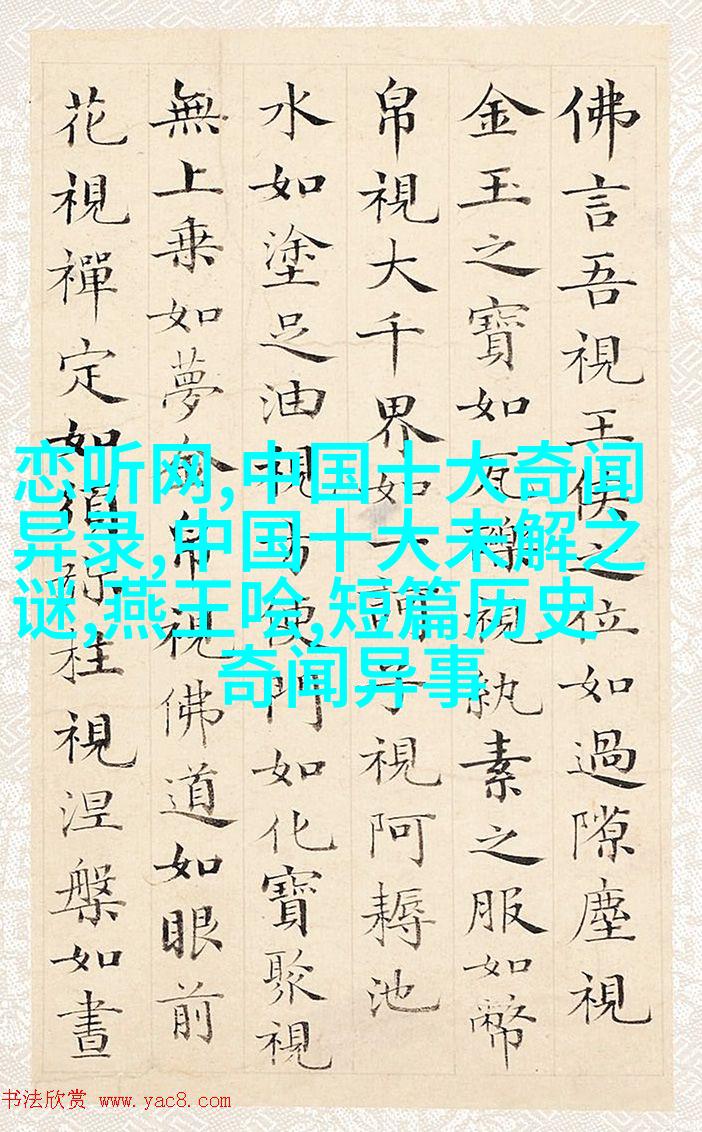 佛言吾視王侯之位如過隙塵視
金玉之寶如瓦礫視紈素之服如幣
帛視大千界如一訶子視阿耨池
水如塗足油視方便門如化寶聚視
無上乗如夢金帛視佛道如眼前
花視禪定如須弥柱視涅槃如晝
恋听网,中国十大奇闻
异录,中国十大未解之
谜,燕王哙,短篇历史
奇闻异事
书法欣赏 www.yac8.com